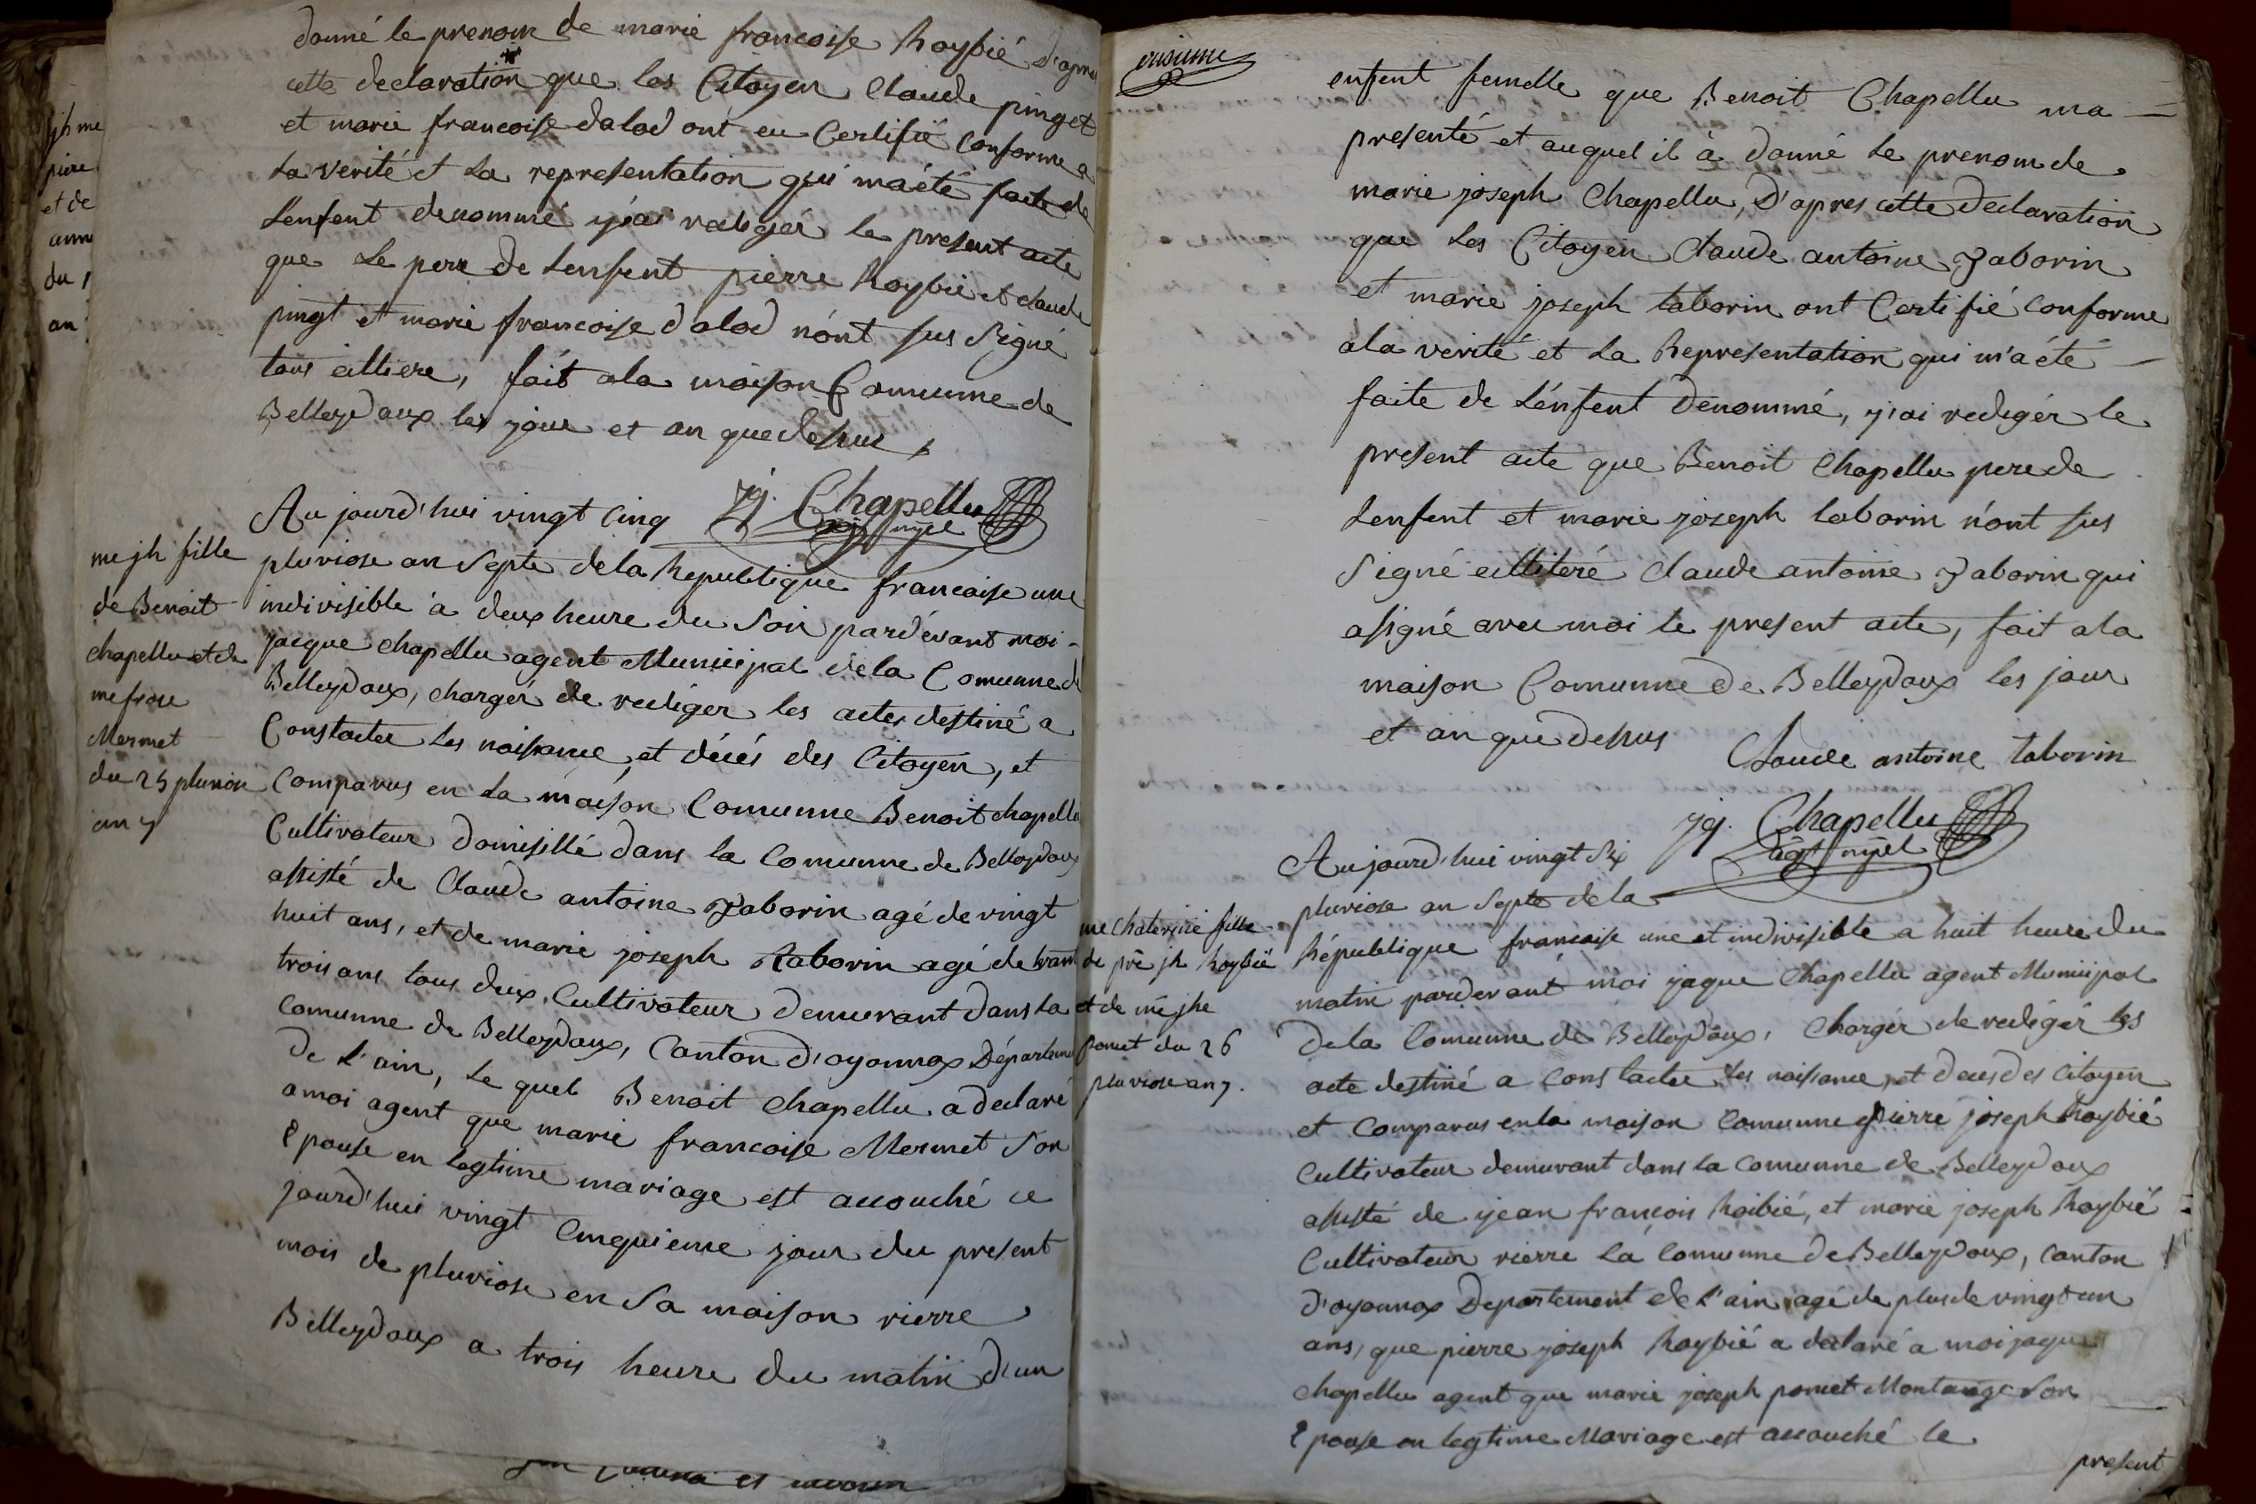 donné le prenom de marie francoise Roybié D'apres
cette declaration que les Citoyen Claude pinget
et marie francoise dalod ont eu Certifié Conforme a
la verité et la representation qui maété faite de
Lenfent denommé y'ai redigér le present acte
que Le pere de Lenfent pierre Roybié et claude
pingt et marie francoise dalod nónt sus signé
tous
fait ala maison Comunne de
Belleydoux les jour et an quedessus
jq. Chapellu
Au jourd'hui vingt cinq
pluviose an septe dela Republique francaise une
indivisible a deux heure du soir pardevant moi
jacque chapellu agent Municipal dela Comunne de
Belleydoux, charger de rediger les actes destiné a
Constater les naissance, et décés des Citoyen, et
Comparus en la maison Comunne Benoit chapellu
Cultivateur domisillé dans la Comunne de Belleydoux
assisté de Claude antoine Taborin agé de vingt
huit ans, et de marie joseph Taborin agé de trant
trois ans tous deux Cultivateur demeurant dans la
Comunne de Belleydoux, Canton d'oyonnax Départeme
De L'ain, Le quel Benoit Chapellu a declaré
amoi agent que marie francoise Mermet son
Epouse en legtime mariage est accouché ce
jourd'hui vingt Cinquieme jour du present
mois de pluviose en sa maison rierre
Belleydoux a trois heure du matin d'un
me jh fille
de Benoit
chapellu et de
me frse
Mermet
du 25 pluviose
an 7
onsieme
enfent femelle que Benoit Chapellu ma
presenté et auquel il à donné Le prenom de
marie joseph Chapellu, D'apres cette declaration
que Les Citoyen Claude antoine Taborin
et marie joseph taborin ont Certifié conforme
ala verité et La Representation qui m'a été
faite de Lénfent Dénommé, y'ai redigér le
present acte que Benoit Chapellu pere de
Lenfent et marie joseph taborin n'ont sus
signé illiteré Claude antoine Taborin qui
asigné avec moi le present acte, fait ala
maison Comunne De Belleydoux les jour
et an que dessus
Claude antoine taborin
jq. Chapellu
agt mpel
Aujourd'hui vingt six
pluviose an septe dela
République francaise une et indivisible a huit heure du
matin pardevant moi jaque Chapellu agent Municipal
Dela Comunne de Belleydoux, Charger de redigér les
acte destiné a Constater les naissance, et deces des Citoyen
et Comparus enla maison Comunne pierre joseph Roybié
Cultivateur demeurant dans la Comunne de Belleydoux
assisté de jean francois Roibié, et marie joseph Roybié
Cultivateur rierre La Comunne de Belleydoux, Canton
d'oyonnax Departement de L'ain agé de plus de vingt un
ans, que pierre joseph Roybié a declaré a moi jaque
Chapellu agent que marie joseph poncet Montange son
Epouse en legtime Mariage est accouché le
present
me Chaterine fille
de pre jh Roybié
et de me jhe
poncet du 26
pluviose an 7.